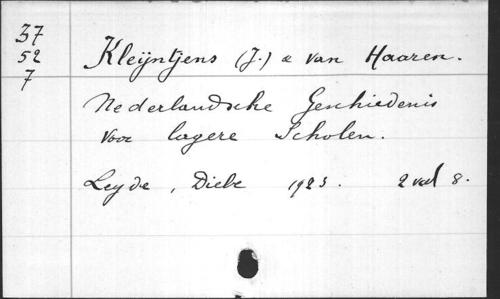 37
52
7
Kleijntjens (J.) & van Haaren.
Nederlandsche Geschiedenis
voor lagere Scholen.
Leyde, 1923. 2 vol 8.